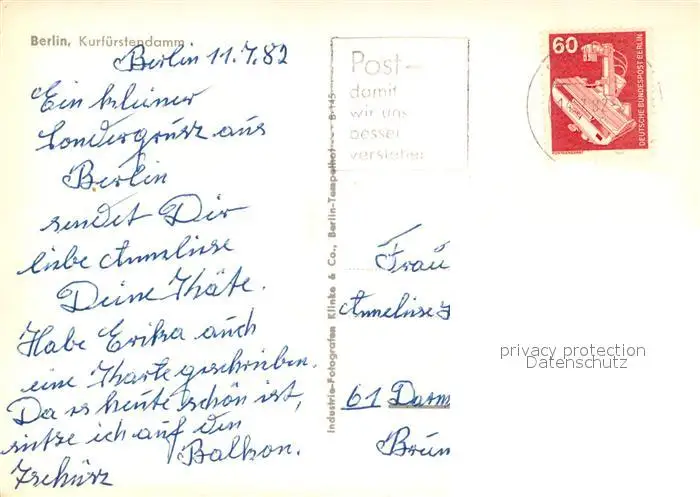 Berlin, Kurfürstendamm
Berlin 11.7.82
Ein kleiner
Sondergrusz aus
Berlin
sendet Dir
liebe Anneliese
Deine Käte.
Habe Erika auch
eine Karte geschrieben.
Da es heute schön ist,
sitze ich auf den
Balkon.
Tschüsz
Industrie-Fotografen Klinke & Co., Berlin-Tempelhof B 145
Post-
damit
wir uns
besser
verstehen
60
DEUTSCHE BUNDESPOST BERLIN
Frau
Anneliese
61 Darm
Brun
privacy protection
Datenschutz